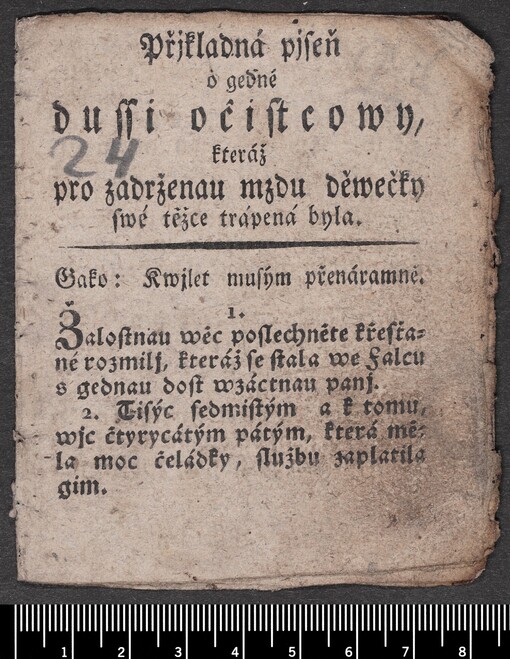 Přjkladná pjseň
o gedné
dussi očistcowy,
kteráž
24
pro zadrženau mzdu děwečky
swé těžce trápená byla.
Gako: Kwjlet musým přenáramně.
1.
Žalostnau wěc poslechněte křesťa=
né rozmilj, kteráž se stala we Falcu
s gednau dost wzáctnau panj.
2. Tisýc sedmistým a k tomu,
wjc čtyrycátým pátým, která mě=
la moc čeládky, službu zaplatila
gim.
1 2 3 4 5 6 7 8